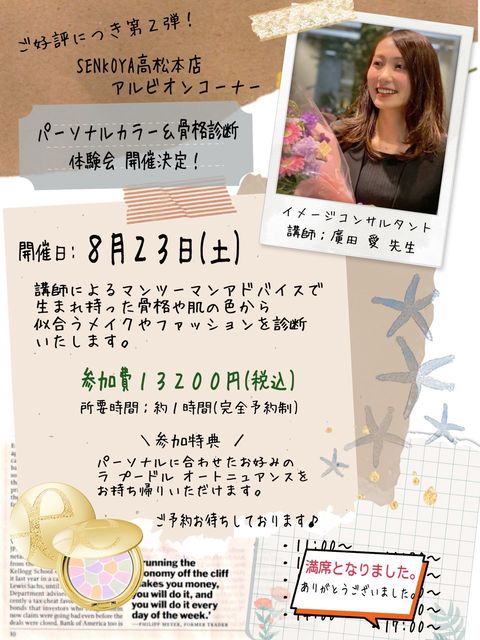 ご好評につき第2弾！
SENKOYA高松本店
アルビオンコーナー
パーソナルカラー&骨格診断
体験会 開催決定！
イメージコンサルタント
講師；廣田 愛 先生
開催日：8月23日(土)
講師によるマンツーマンアドバイスで
生まれ持った骨格や肌の色から
似合うメイクやファッションを診断
いたします。
参加費13200円(税込)
所要時間；約1時間(完全予約制)
\ 参加特典 /
パーソナルに合わせたお好みの
ラ プードル オートニュアンスを
お持ち帰りいただけます。
ご予約お待ちしております♪
running the
economy off the cliff
makes you money,
you will do it, and
you will do it every
day of the week.'
—PHILIPP MEYER, FORMER TRADER
Kellogg School
it last year in a ca
Lewis Sachs, until
Department advise
ly a tax-cheat favo
bonds that investors who
now claim were going bad even before the
deals were closed. Bank of America too is
11:00〜
満席となりました。
ありがとうございました。
17:00〜